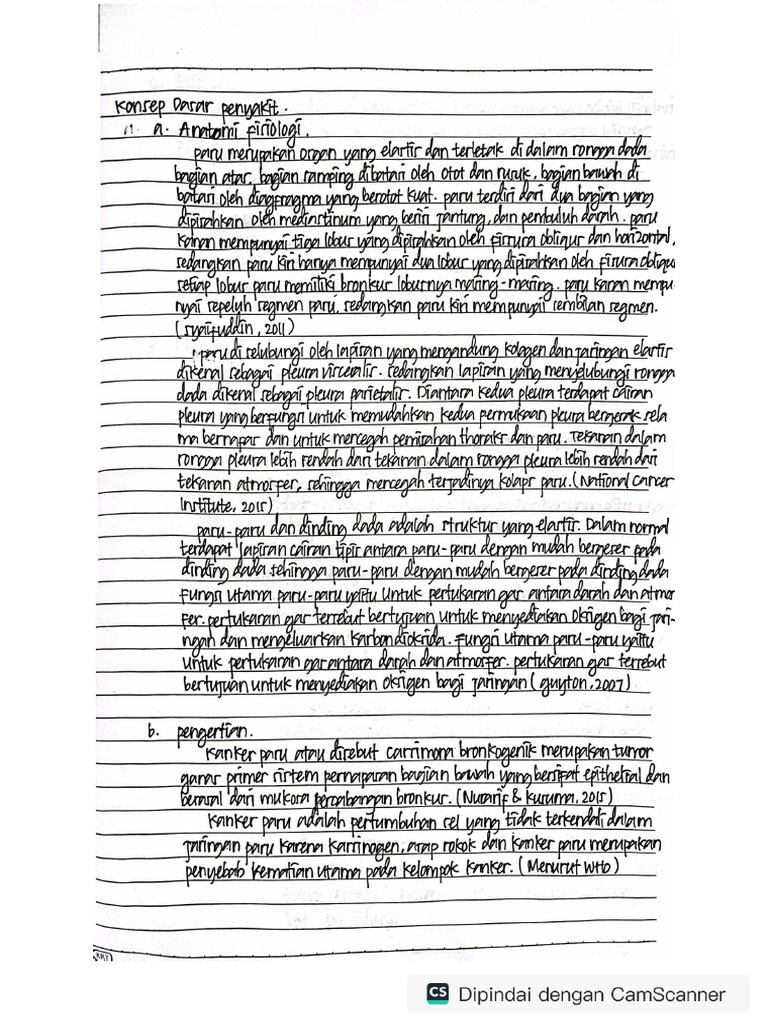 Konsep Dasar penyakit.
a. Anatomi fisiologi.
paru merupakan organ yang elastis dan terletak di dalam rongga dada
bagian atas, bagian samping dibatasi oleh otot dan rusuk, bagian bawah di
batasi oleh diagfragma yang berotot kuat. paru terdiri dari dua bagian yang
dipisahkan oleh mediastinum yang berisi jantung, dan pembuluh darah. paru
kanan mempunyai tiga lobus yang dipisahkan oleh fissura obliqus dan horizontal,
sedangkan paru kiri hanya mempunyai dua lobus yang dipisahkan oleh fisura obliqus
setiap lobus paru memiliki bronkus lobusnya masing-masing. paru kanan mempu
nyai sepeluh segmen paru, sedangkan paru kiri mempunyai sembilan segmen.
(syaifuddin, 2011)
paru di selubungi oleh lapisan yang mengandung kolagen dan jaringan elastis
dikenal sebagai pleura visceralis. sedangkan lapisan yang menyelubungi rongga
dada dikenal sebagai pleura parietalis. Diantara kedua pleura terdapat cairan
pleura yang berfungsi untuk memudahkan kedua permukaan pleura bergerak sela
ma bernafas dan untuk mencegah pemisahan thoraks dan paru. Tekanan dalam
rongga pleura lebih rendah dari tekanan dalam rongga pleura lebih rendah dari
tekanan atmosfer, sehingga mencegah terjadinya kolaps paru. (National Cancer
Institute, 2015)
paru-paru dan dinding dada adalah struktur yang elastis. Dalam normal
terdapat lapisan cairan tipis antara paru-paru dengan mudah bergeser pada
dinding dada sehingga paru-paru dengan mudah bergeser pada dinding dada
Fungsi utama paru-paru yaitu untuk pertukaran gas antara darah dan atmos
fer. pertukaran gas tersebut bertujuan untuk menyediakan oksigen bagi jari-
ngan dan mengeluarkan karbondioksida. Fungsi utama paru-paru yaitu
untuk pertukaran gas antara darah dan atmosfer. pertukaran gas tersebut
bertujuan untuk menyediakan oksigen bagi jaringan (guyton, 2007)
b. pengertian.
kanker paru atau disebut carsinoma bronkogenik merupakan tumor
ganas primer sistem pernapasan bagian bawah yang bersifat epithelial dan
berasal dari mukosa percabangan bronkus. (Nurarif & kusuma, 2015)
kanker paru adalah pertumbuhan sel yang tidak terkendali dalam
jaringan paru karena karsinogen, asap rokok dan kanker paru merupakan
penyebab kematian utama pada kelompok kanker. (Menurut WHO)
KKY
CS Dipindai dengan CamScanner